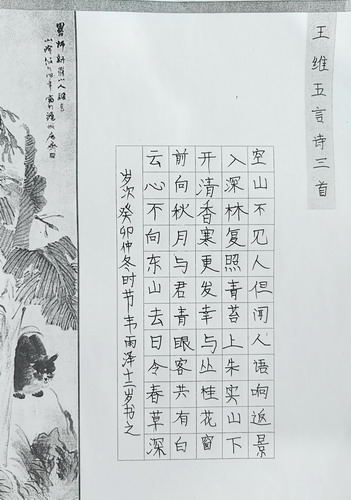 王维五言诗三首
空山不见人但闻人语响返景
入深林复照青苔上朱实山下
开清香寒更发幸与丛桂花窗
前向秋月与君青眼客共有白
云心不向东山去日令春草深
岁次癸卯仲冬时节韦雨泽十二岁书之